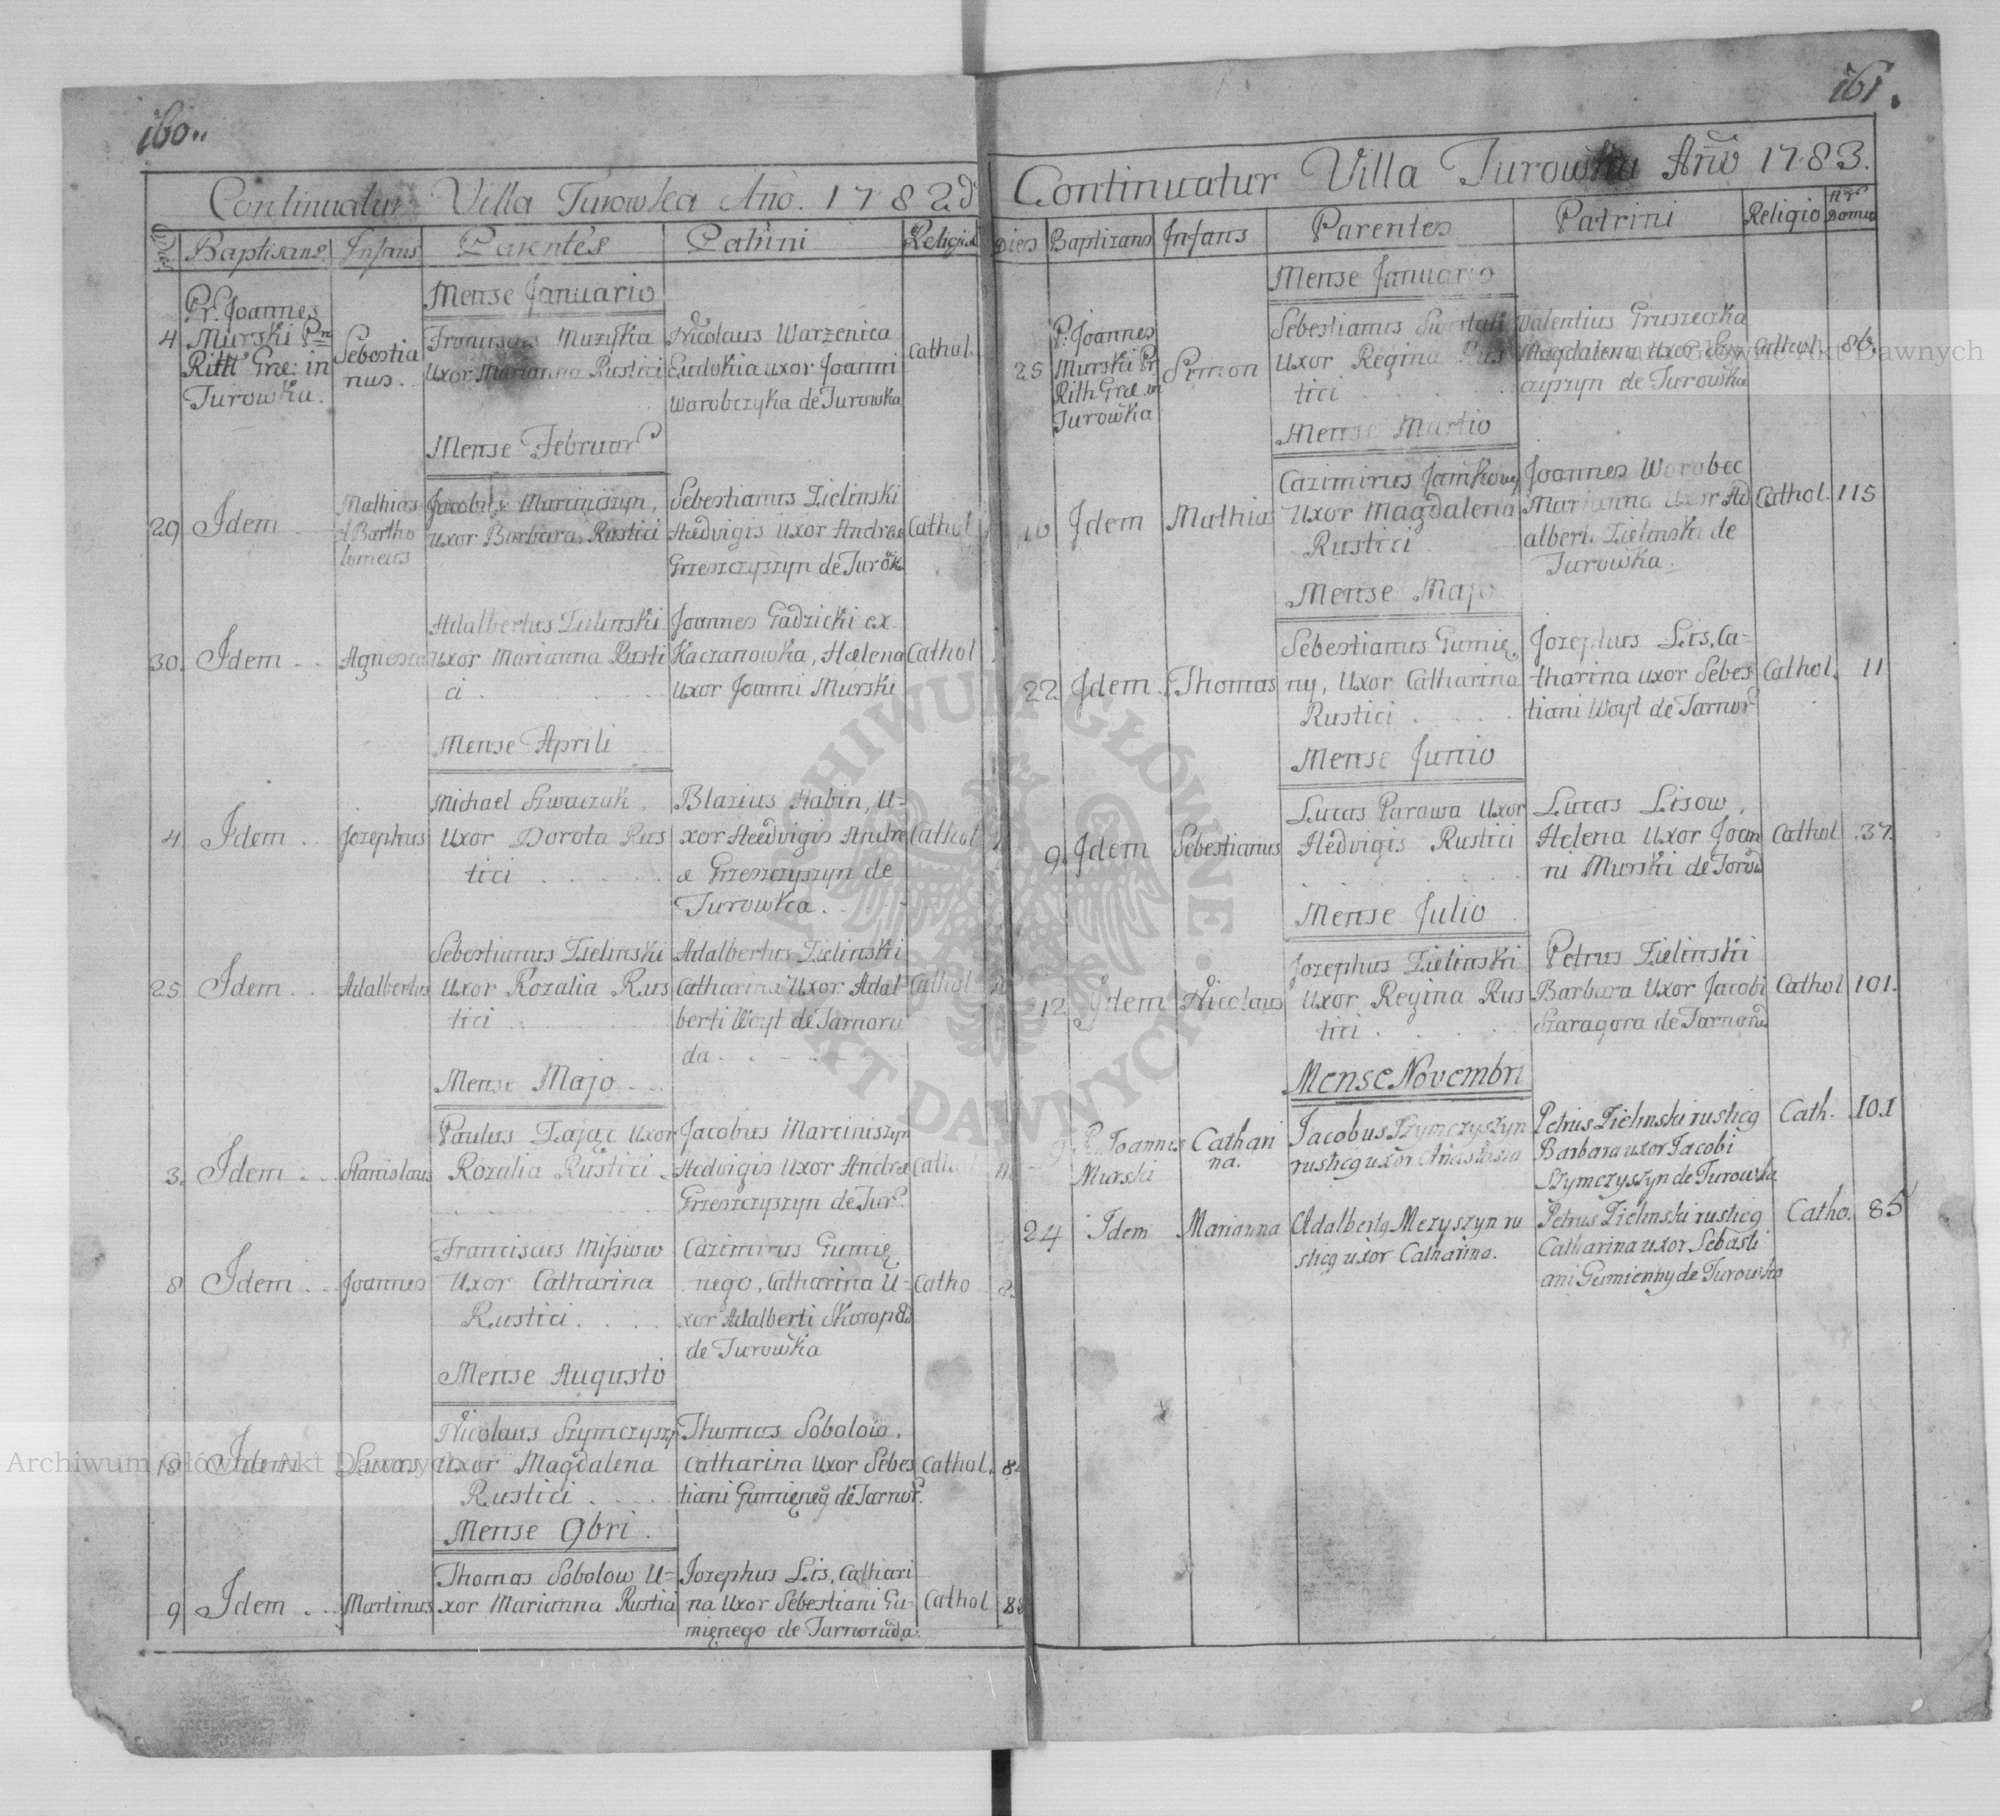 160.
Continuatur Villa Turowka Año. 1782
Dies Baptisans Infans Parentes Patrini Religio
Mense Januario
4 Pr. Joannes Murski Pr. Ritt Grae: in Turowka. Sebestianus. Franciscus Muzyka Uxor Marianna Rustici Nicolaus Warzenica Eudokia uxor Joanni Worobczyka de Turowka Cathol.
Mense Februar
29 Idem Mathias et Bartholomeus Jacobus Marciniszyn, Uxor Barbara Rustici Sebestianus Zielinski Hedvigis Uxor Andreae Grzeszczyszyn de Turowk Cathol
30. Idem Agnesca Adalbertus Zielinski Uxor Marianna Rustici Joannes Gadzicki ex Kaczanowka, Helena Uxor Joanni Murski Cathol
Mense Aprili
4. Idem Jozephus Michael Szwaczuk, Uxor Dorota Rustici Blazius Habin, Uxor Hedvigis Andreae Grzeszczyszyn de Turowka. Cathol
25 Idem Adalbertus Sebestianus Zielinski Uxor Rozalia Rustici Adalbertus Zielinski Catharina Uxor Adalberti Woyt de Tarnoruda Cathol
Mense Majo
3. Idem Stanislaus Paulus Zając Uxor Rozalia Rustici Jacobus Marciniszyn Hedvigis Uxor Andreae Grzeszczyszyn de Tur. Cathol
8 Idem Joannes Franciscus Missiow Uxor Catharina Rustici Cazimirus Gumięnego, Catharina Uxor Adalberti Skoropad de Turowka Catho
Mense Augusto
18 Idem Lucas Nicolaus Szymczyszyn Uxor Magdalena Rustici Thomas Sobolow, Catharina Uxor Sebestiani Gumięneg de Tarnor. Cathol.
Mense 9bri.
9 Idem Martinus Thomas Sobolow Uxor Marianna Rustici Jozephus Lis, Catharina Uxor Sebestiani Gumięnego de Tarnoruda. Cathol 88
161.
Continuatur Villa Turowka Año 1783.
Dies Baptizans Infans Parentes Patrini Religio Nr Domus
Mense Januario
25 P. Joannes Murski Pr. Rith Grae in Turowka Simon Sebestianus Uxor Regina Rustici Valentius Gruszeczka Magdalena Uxor de Turowka Cathol 86.
Mense Martio
10 Idem Mathias Cazimirus Jamkowy Uxor Magdalena Rustici Joannes Worobec Marianna Uxor Adalberti Zielinski de Turowka. Cathol. 115
Mense Majo
22 Idem Thomas Sebestianus Gumięny, Uxor Catharina Rustici Jozephus Lis, Catharina uxor Sebestiani Woyt de Tarnor Cathol. 11
Mense Junio
9. Idem Sebestianus Lucas Parawa Uxor Hedvigis Rustici Lucas Lisow, Helena Uxor Joanni Murski de Torow Cathol 37.
Mense Julio
12 Idem Nicolaus Jozephus Zielinski Uxor Regina Rustici Petrus Zielinski Barbara Uxor Jacobi Szaragora de Tarnorud Cathol 101.
Mense Novembri
9 R. Joannes Murski Catharina. Jacobus Szymczyszyn rusticq uxor Anastasia Petrus Zielinski rusticq Barbara uxor Jacobi Szymczyszyn de Turowka. Cath. 101
24 Idem Marianna Adalbertq Mezyszyn rusticq uxor Catharina. Petrus Zielinski rusticq Catharina uxor Sebastiani Gumienny de Turowka Catho. 85
Archiwum Główne Akt Dawnych
ARCHIWUM GŁÓWNE AKT DAWNYCH